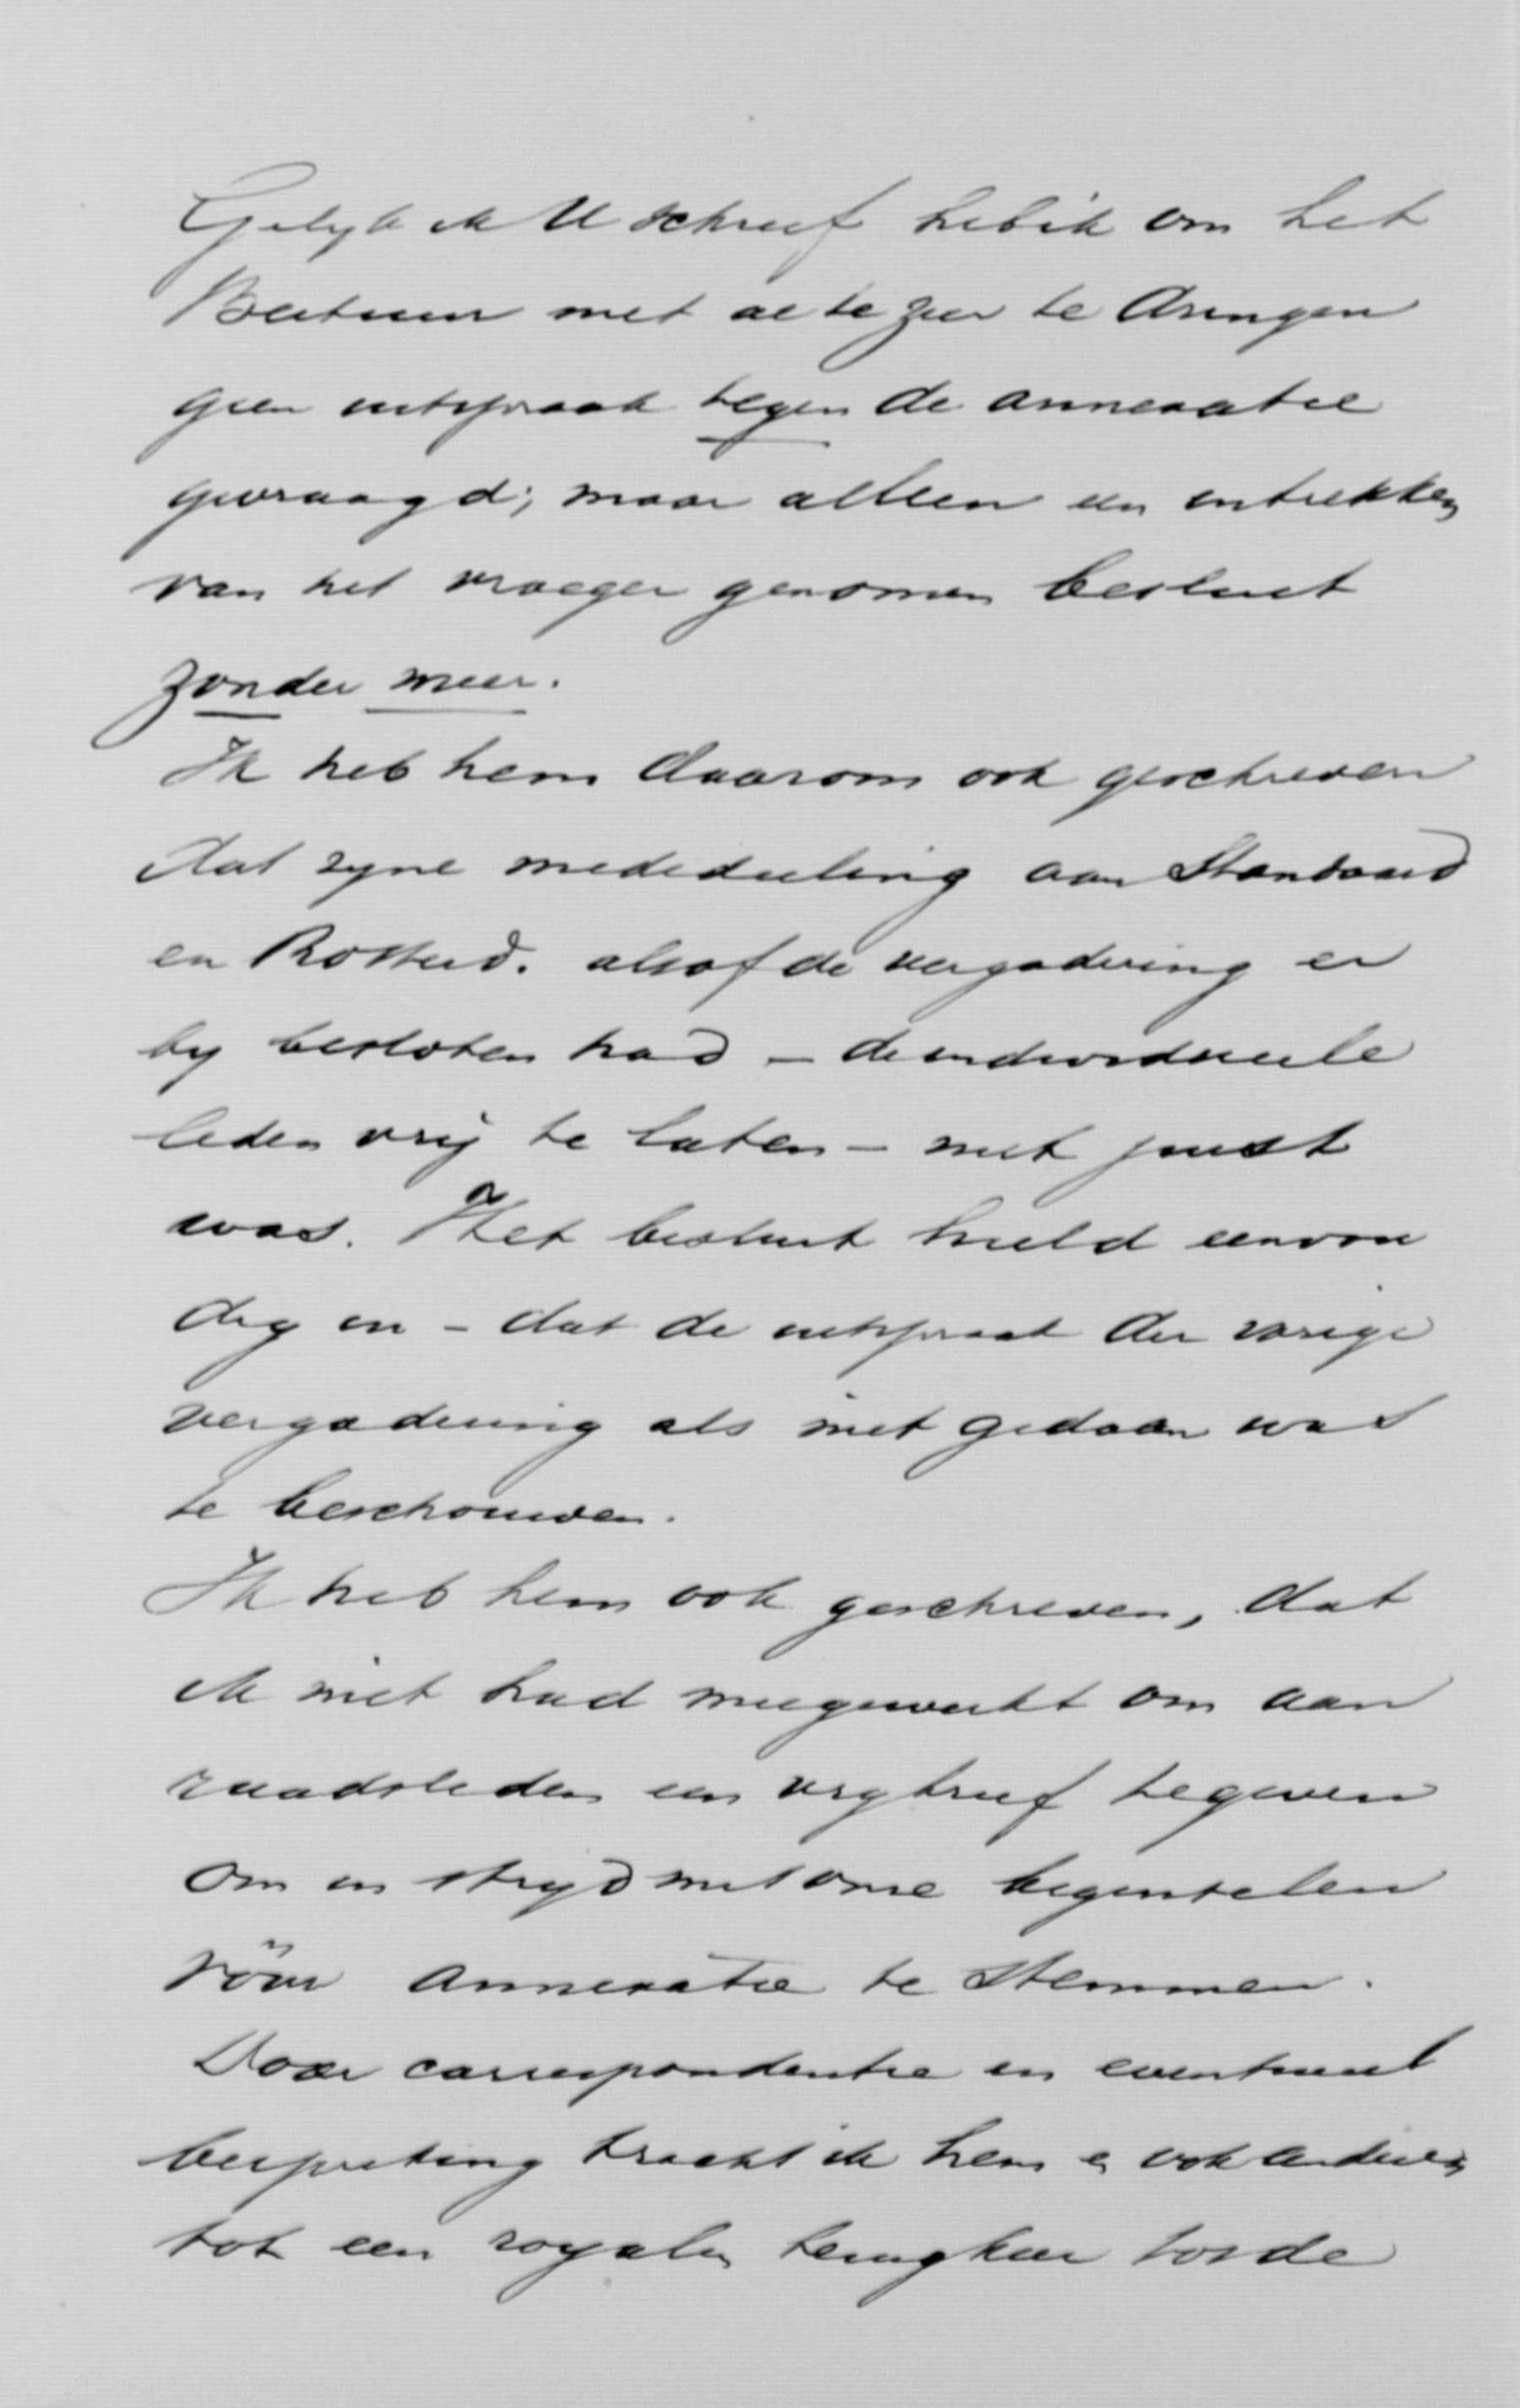 Gelyk ik U schreef heb ik om het
Bestuur niet al te zeer te dringen
geen uitspraak tegen de annexatie
gevraagd; maar alleen een intrekken
van het vroeger genomen besluit
zonder meer.
Ik heb hem daarom ook geschreven
dat zyne mededeeling aan Standaard
en Rotterd. alsof de vergadering er
by besloten had – de individueele
leden vrij te laten – niet juist
was. Het besluit hield eenvou
dig in – dat de uitspraak der vorige
vergadering als niet gedaan was
te beschouwen.
Ik heb hem ook geschreven, dat
ik niet had meegewerkt om aan
raadsleden een vrybrief te geven
om in stryd met onze beginselen
vóór annexatie te stemmen.
Door correspondentie en eventueel
bespreking tracht ik hem en ook anderen
tot een royalen terugkeer tot de